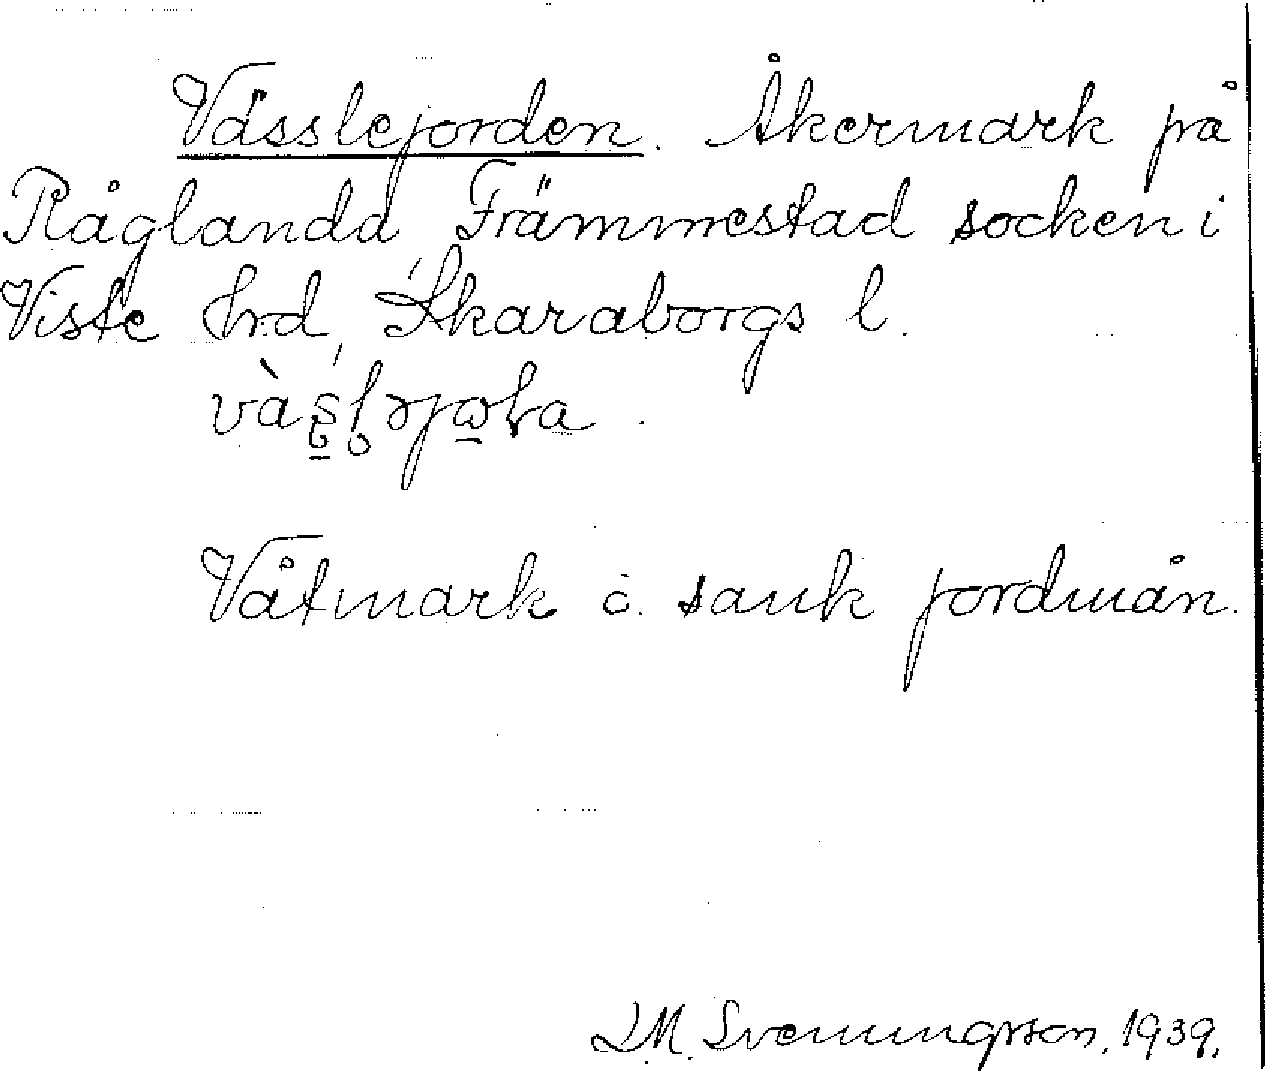 Vässlejorden. Åkermark på
Råglanda, Främmestad socken i
Viste hrd, Skaraborgs l.
Våtmark o. sank jordmån.
D.M. Svenningsson. 1939.